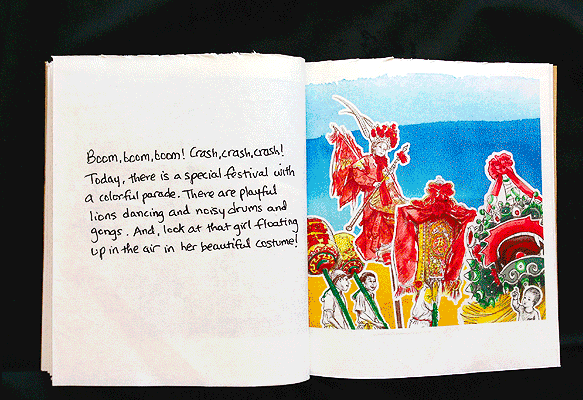 Boom, boom, boom! Crash, crash, crash!
Today, there is a special festival with
a colorful parade. There are playful
lions dancing and noisy drums and
gongs. And, look at that girl floating
up in the air in her beautiful costume!